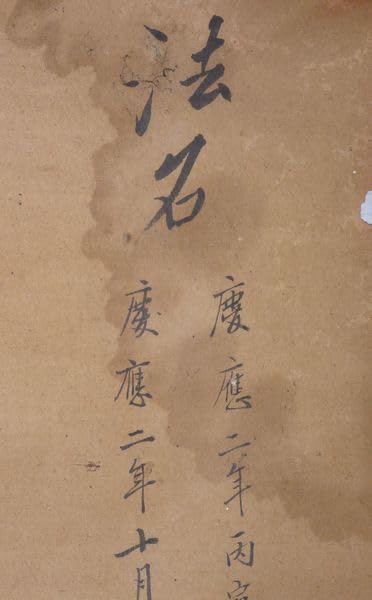 法名
慶應二年丙寅
慶應二年十月